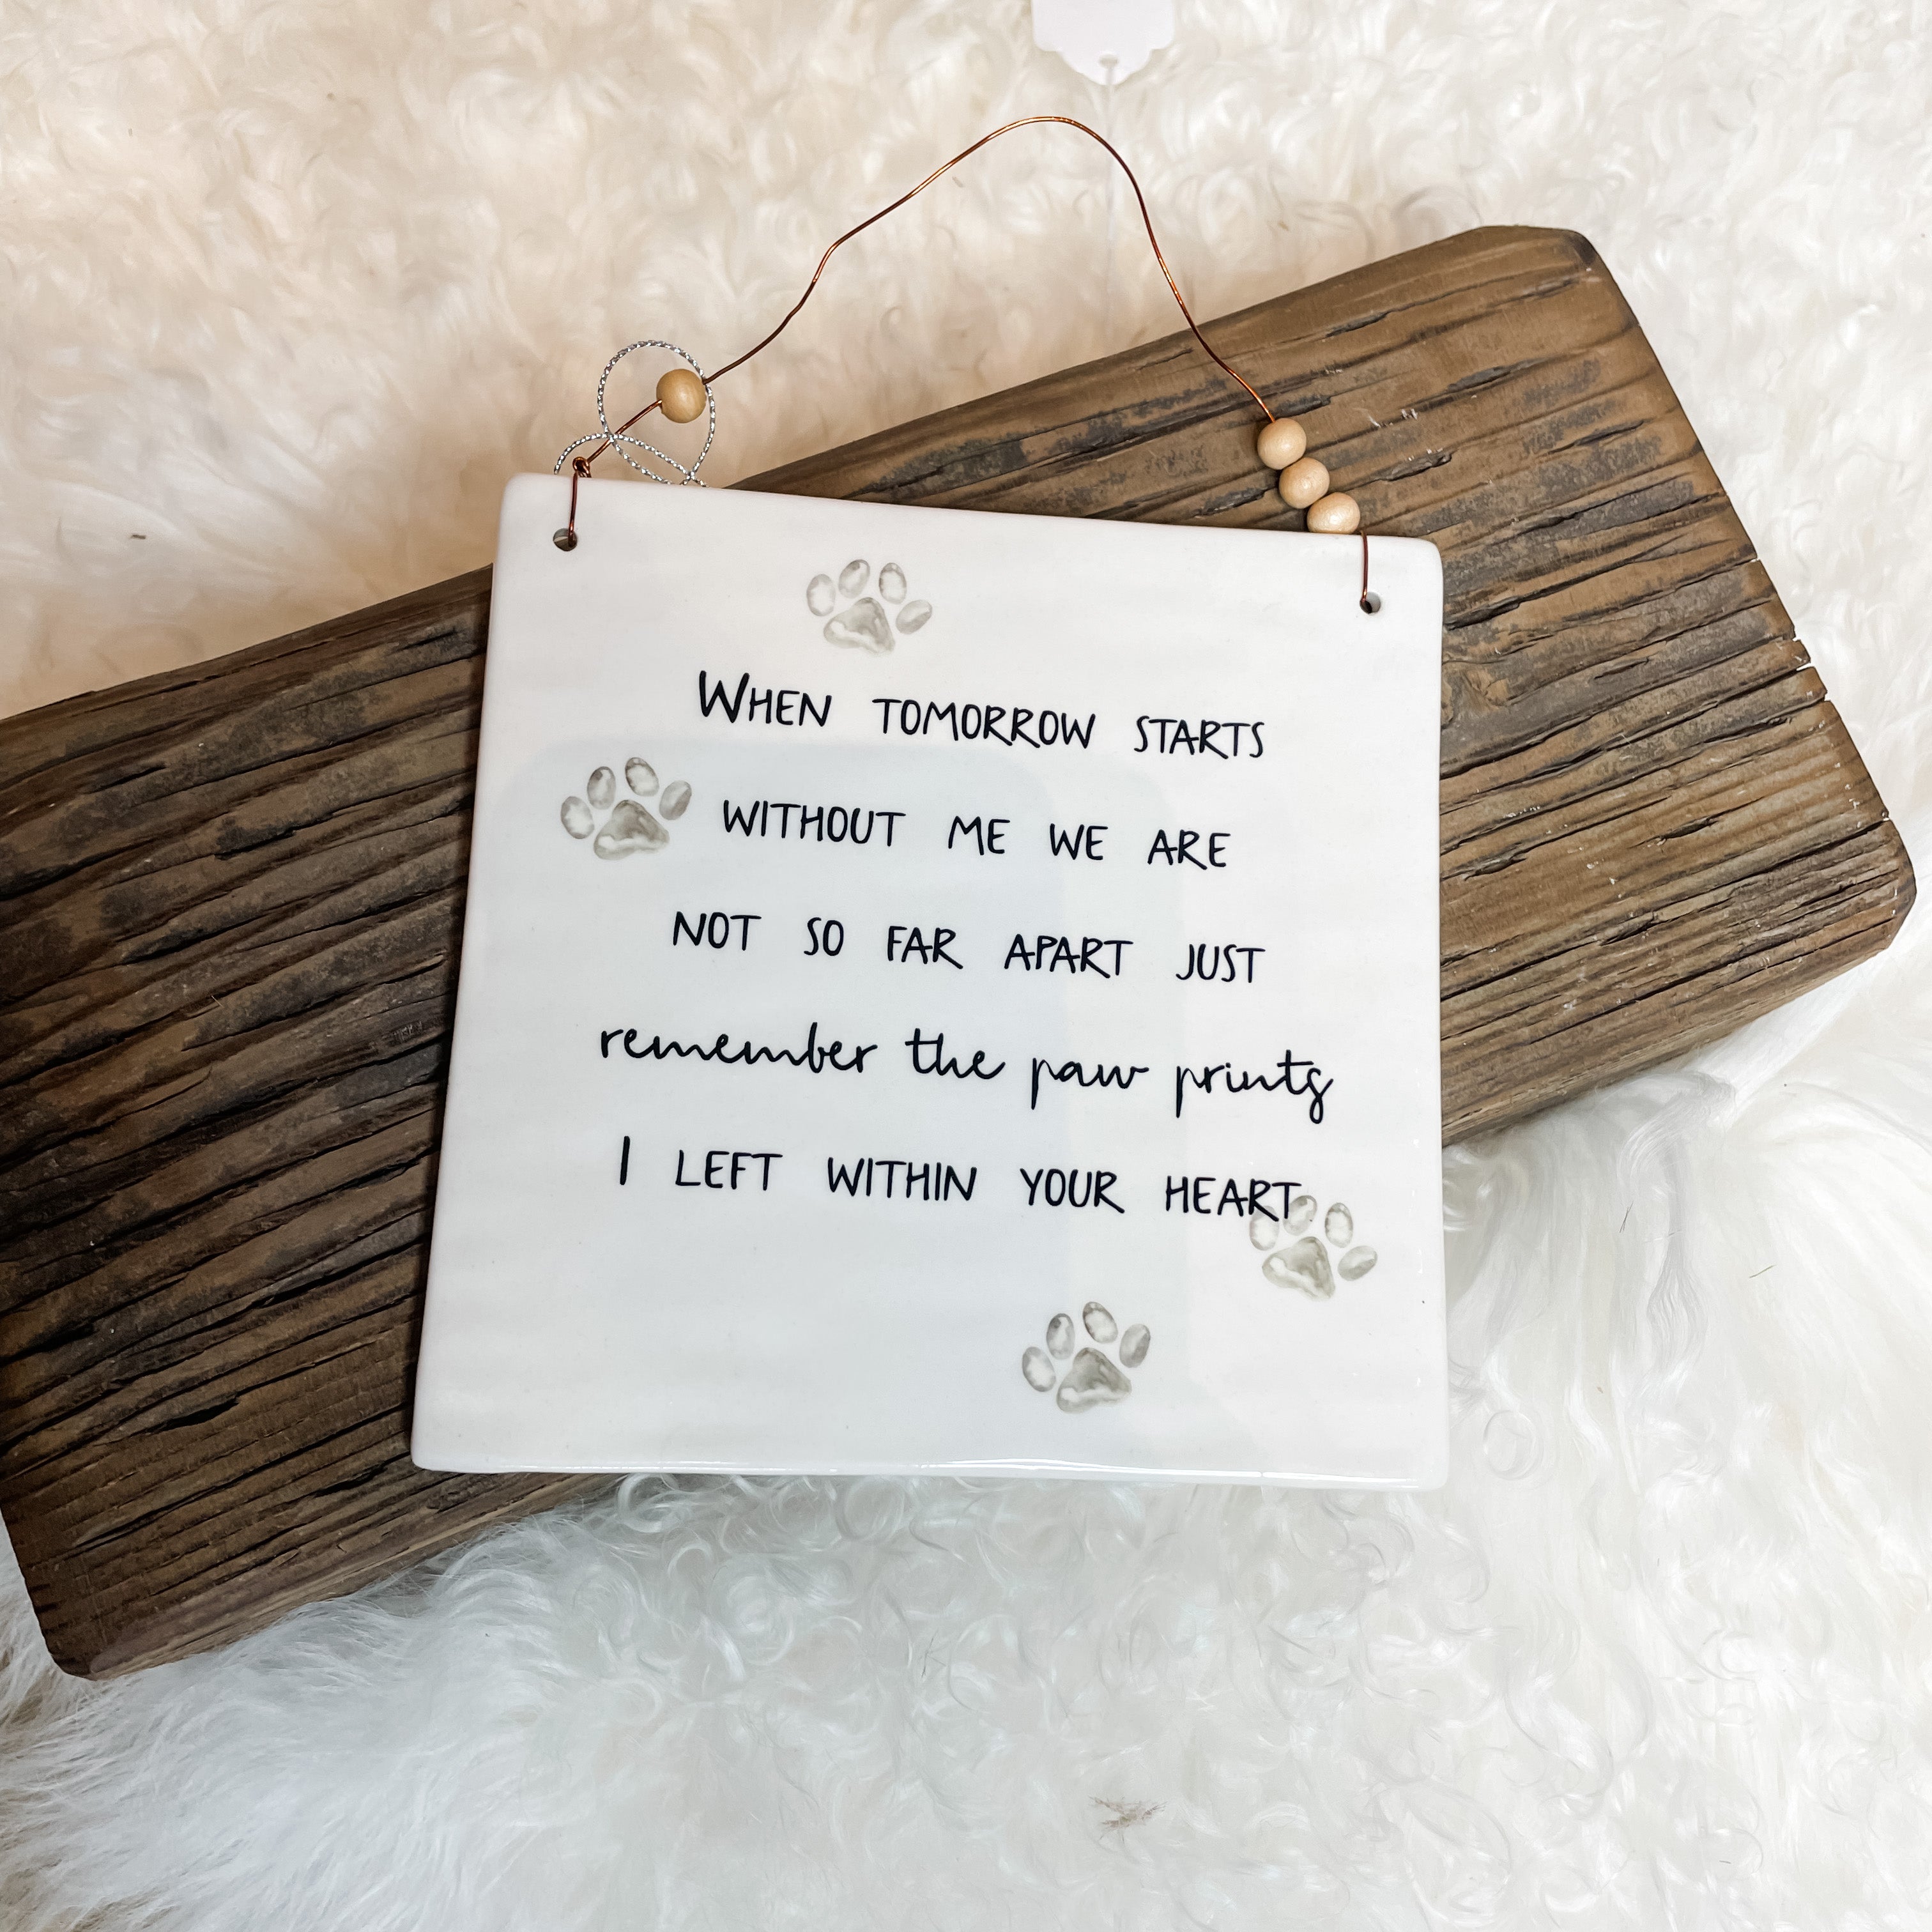 WHEN TOMORROW STARTS
WITHOUT ME WE ARE
NOT SO FAR APART JUST
remember the paw prints
I LEFT WITHIN YOUR HEART